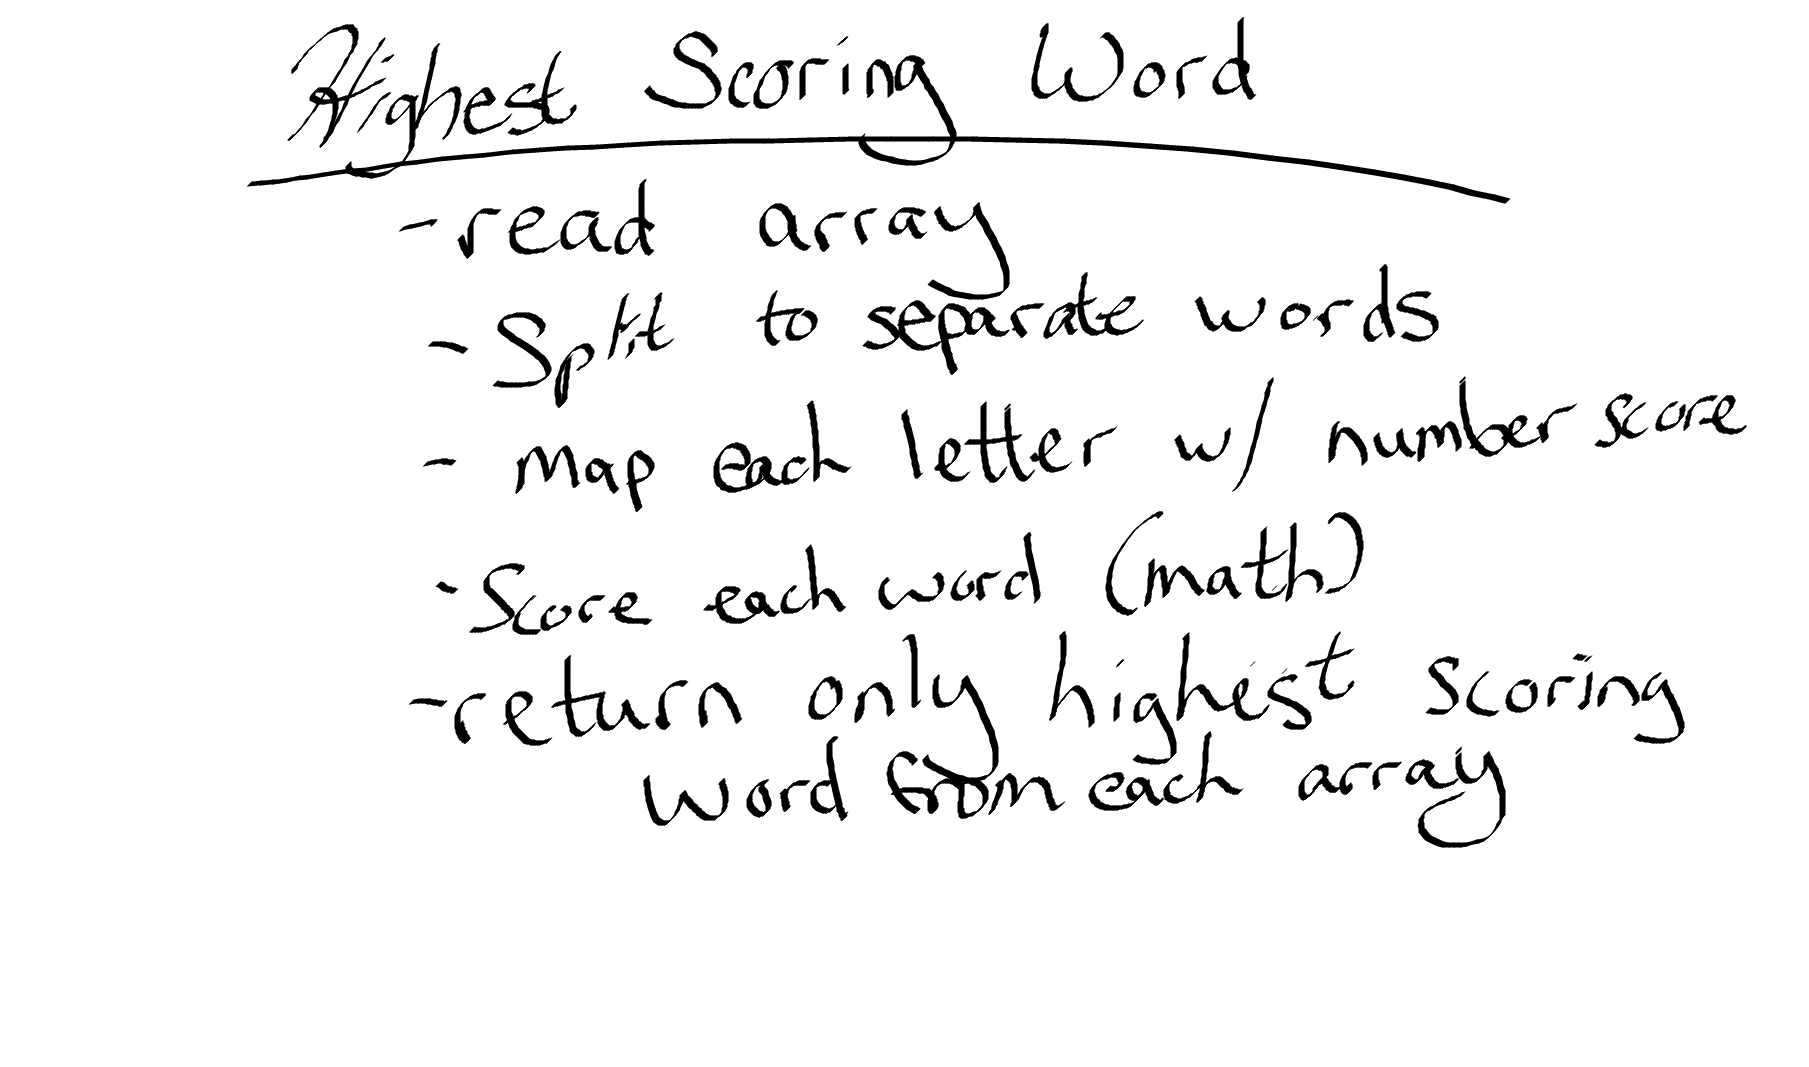 Highest Scoring Word
- read array
- Split to separate words
- map each letter w/ number score
- Score each word (math)
- return only highest scoring
word from each array